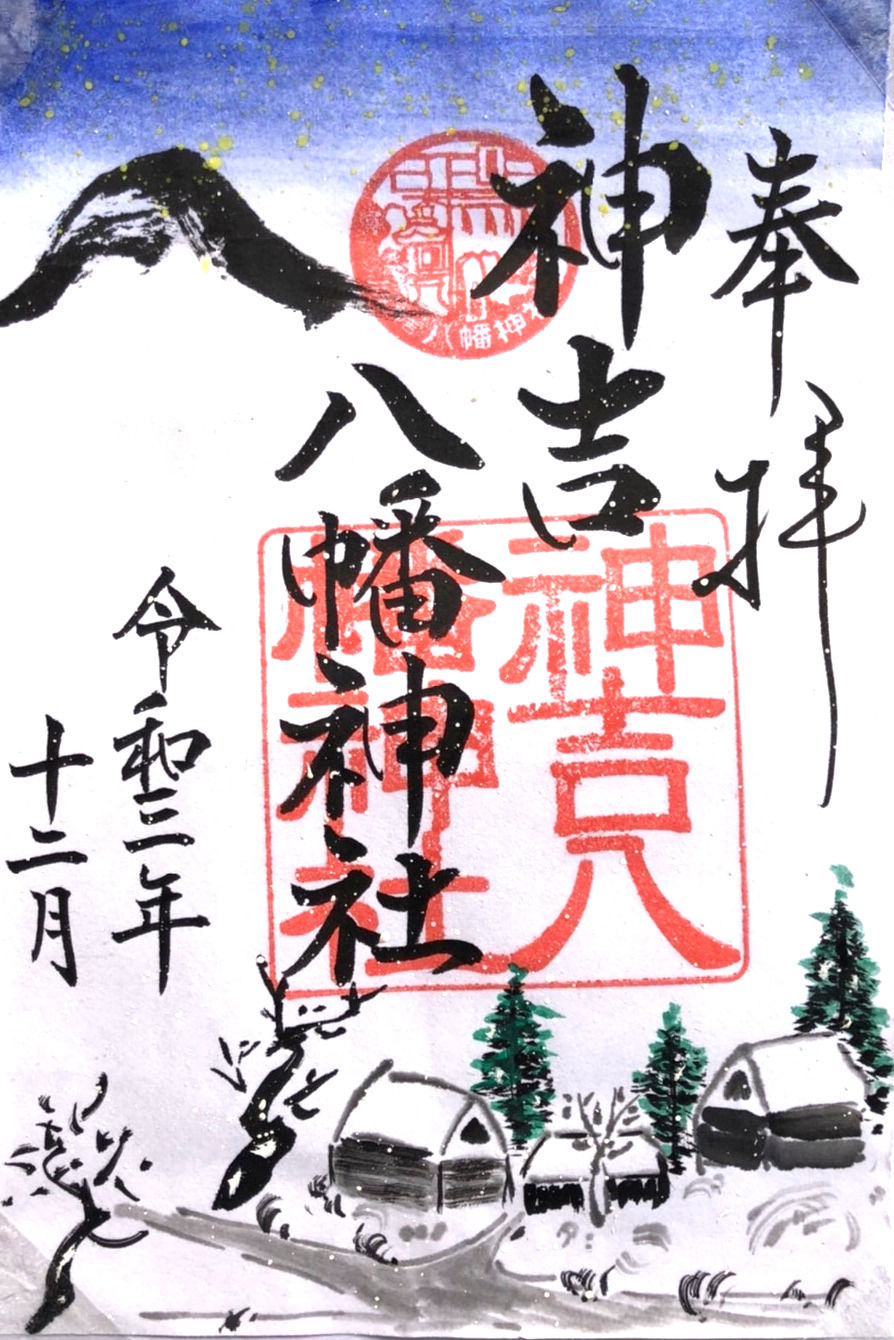 奉拝
神吉
八幡神社
令和三年
十二月
八幡神社
神吉八
幡神社